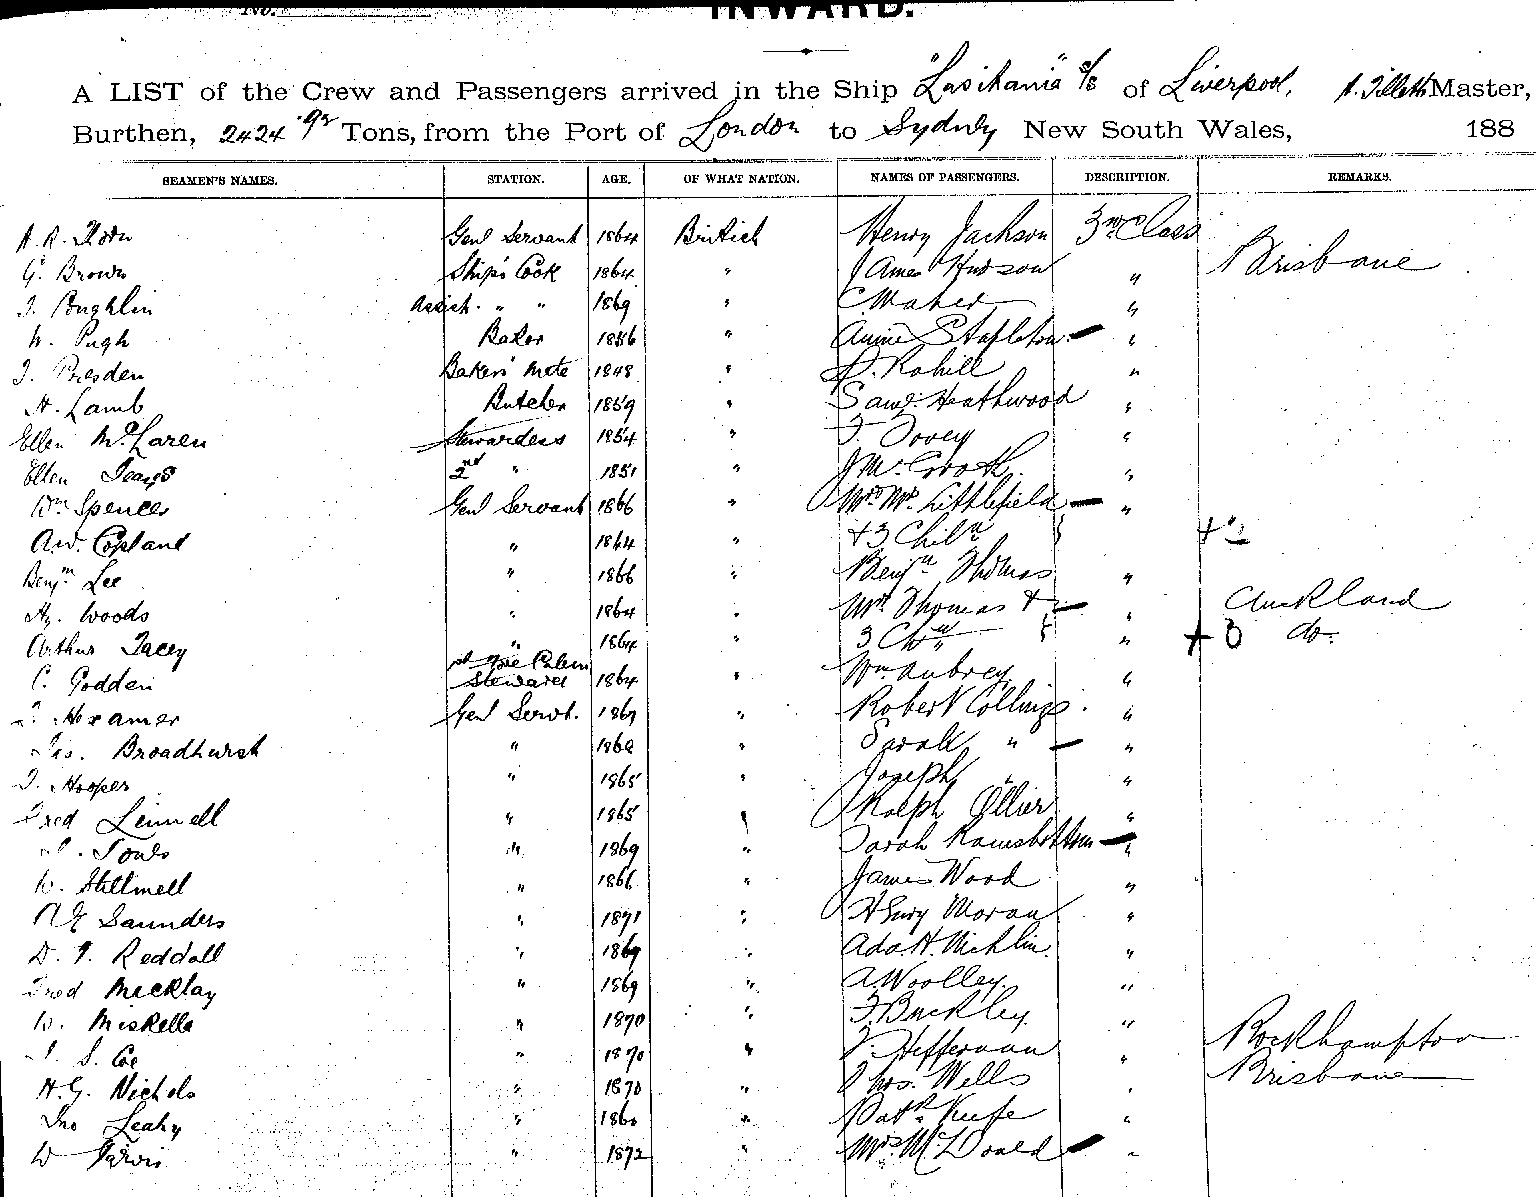 No.
INWARD.
A LIST of the Crew and Passengers arrived in the Ship "Lusitania" s/s of Liverpool, A. Tillett Master,
Burthen, 2424 Tons, from the Port of London to Sydney New South Wales, 188
SEAMEN'S NAMES. STATION. AGE. OF WHAT NATION. NAMES OF PASSENGERS. DESCRIPTION. REMARKS.
A. R. Genl Servant 1864 British Henry Jackson 3rd Class
G. Brown Ship's Cook 1864 " James Hudson " Brisbane
J. Coughlin Assist. " " 1869 " C Maher "
W. Pugh Baker 1856 " Annie Stapleton — "
J. Presden Bakers' Mate 1848 " P. Rahill "
H. Lamb Butcher 1859 " Saml. Heathwood "
Ellen McLaren Stewardess 1854 " F. Tovey "
Ellen 2nd " 1851 " J Mc "
Wm Spences Genl Servant 1866 " Mrs Littlefield — "
Aw. Copland " 1864 " + 3 Chiln
Benjm Lee " 1866 " Benjn Thomas "
Hy. Woods " 1864 " Mrs Thomas + — " Auckland
Arthur Tacey " 1864 " 3 Chn " + 3 do.
C. Godden Steward 1864 " Wm Aubrey "
Hexamer Genl Servt. 1869 " Robert Collings "
Jas. Broadhurst " 1862 " Sarah " — "
J. Hooper " 1865 " Joseph " "
Fred Linnell " 1865 " Ralph Ollier "
Jones " 1869 " Sarah Ramsbottom — "
W. Stillwell " 1866 " James Wood "
Saunders " 1871 " Henry Moran "
D. J. Reddall " 1869 " Ada H. Nichlin "
Fred Mecklay " 1869 " A Woolley. "
W. Miskella " 1870 " F. Buckley "
J. S. Coe " 1870 " Heffernan " Rockhampton
H. G. Nichols " 1870 " Thos. Wells " Brisbane
Jno Leahy " 1860 " Patk Keefe "
W Jarvis " 1872 " Mrs McDonald — "